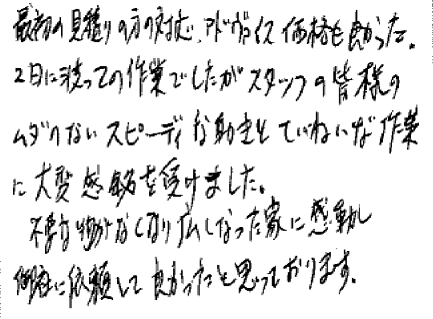 最初の見積りの方の対応、アドヴァイス 価格も良かった。
2日に渡っての作業でしたがスタッフの皆様の
ムダのないスピーディな動きとていねいな作業
に大変感銘を受けました。
不要な物がなくなり広しなった家に感動し
御社に依頼して良かったと思っております。